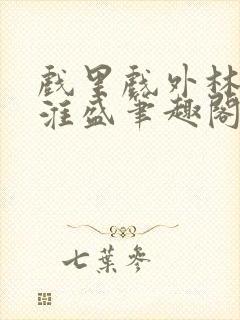 戲里戲外林
淮盛筆趣閣
七葉參